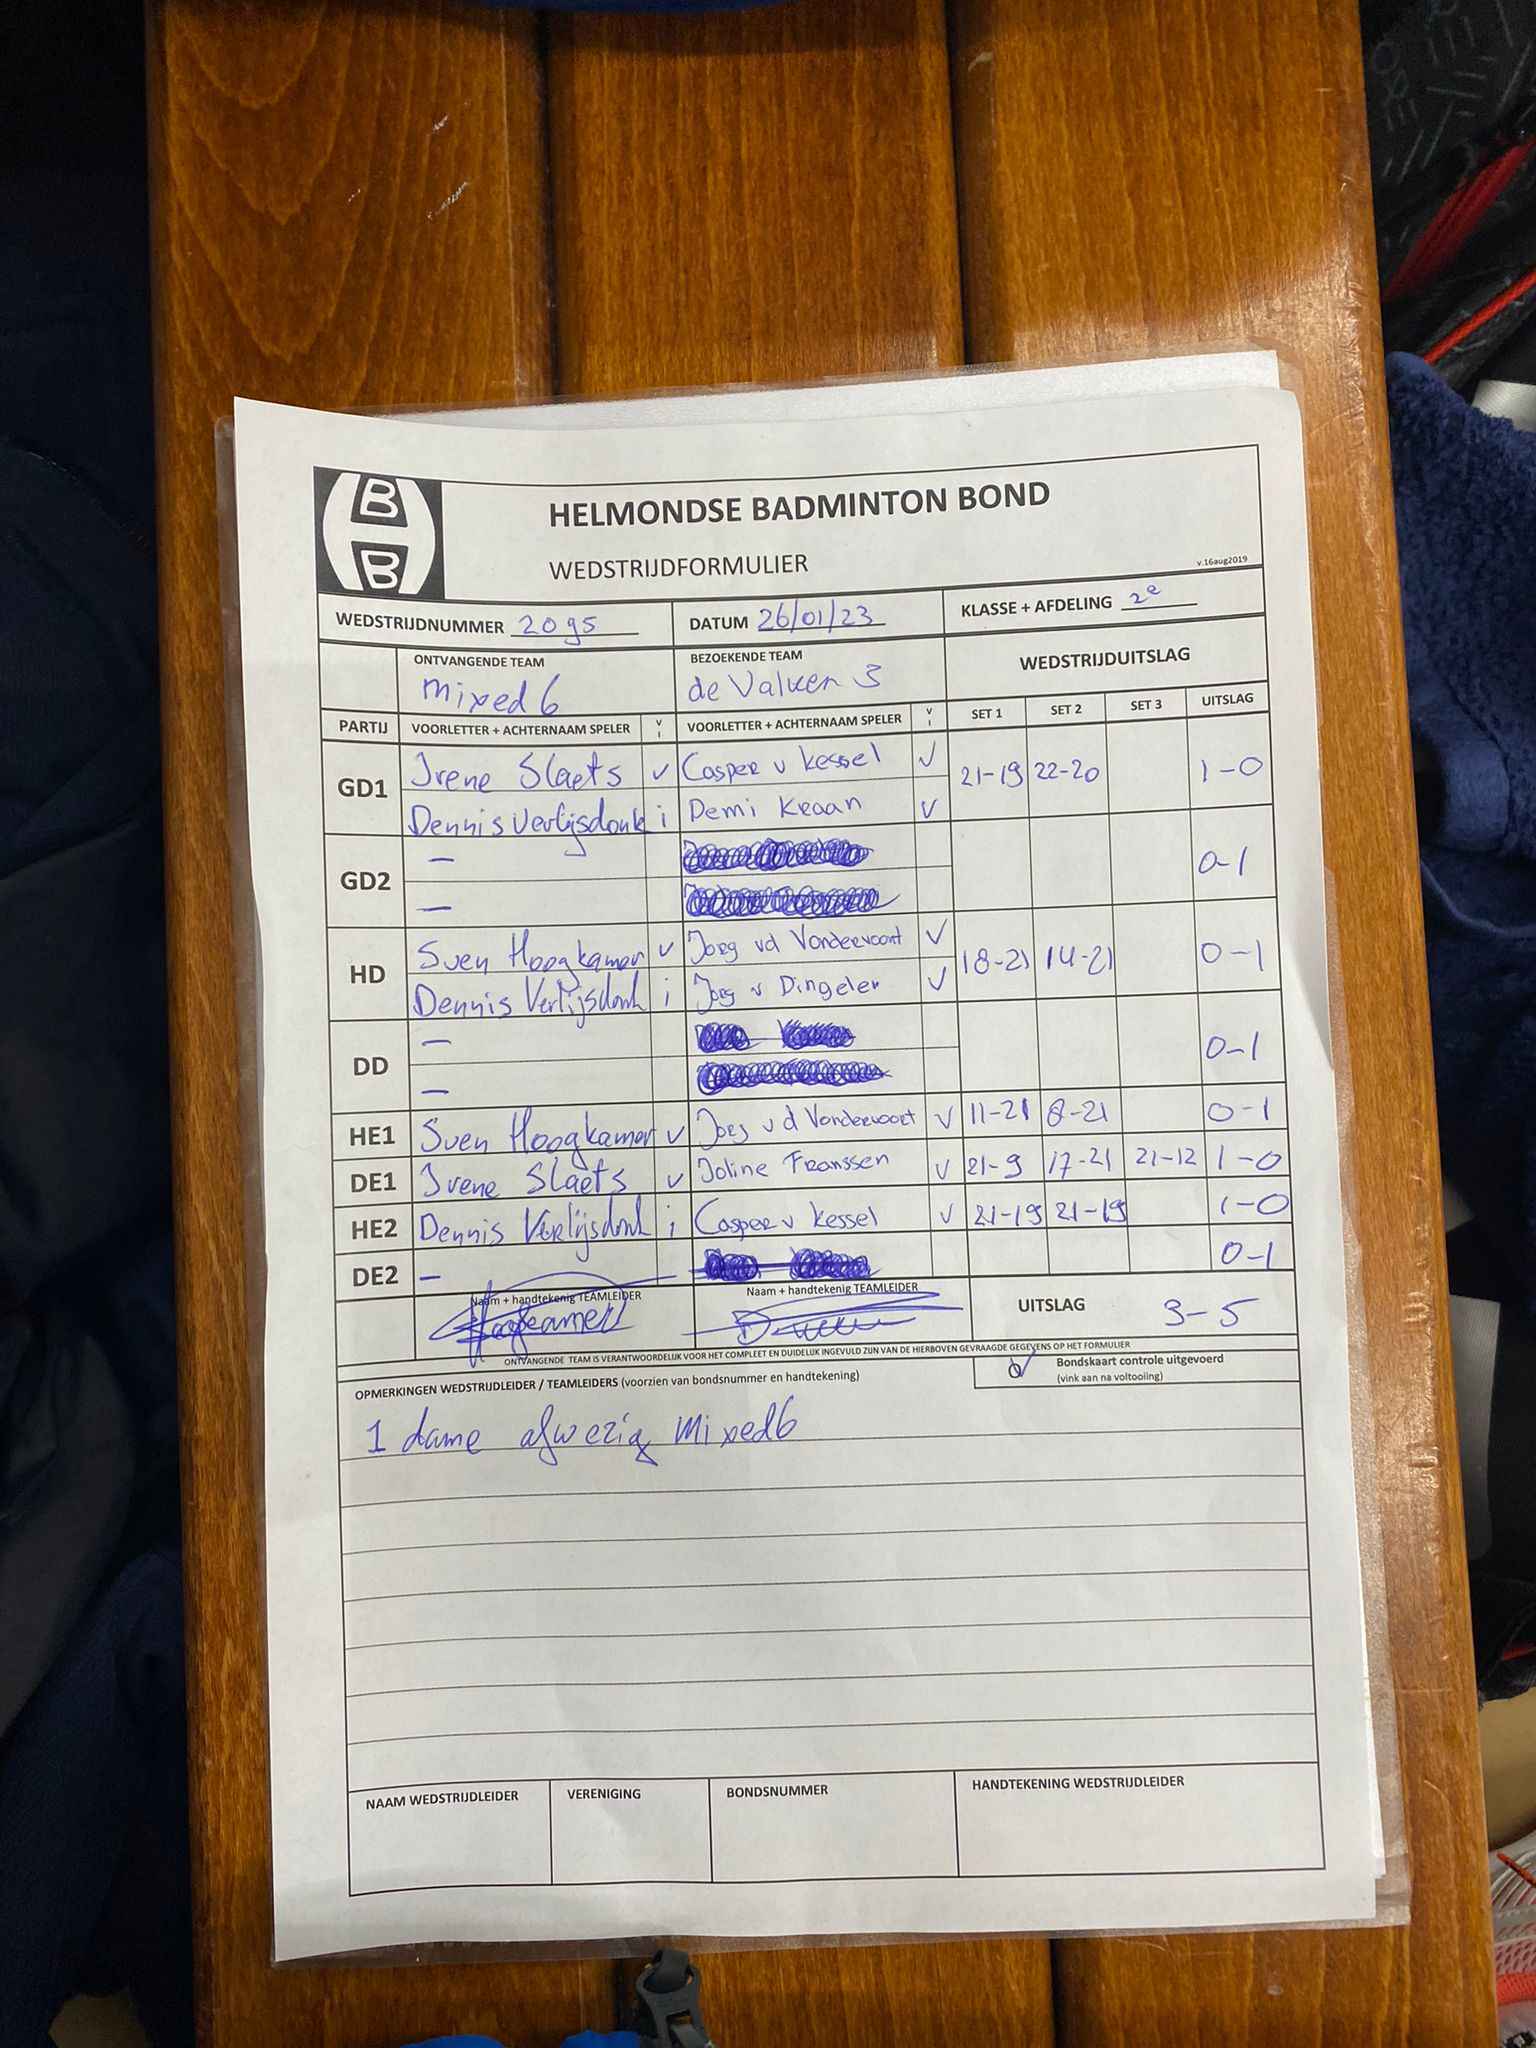 B
B
HELMONDSE BADMINTON BOND
WEDSTRIJDFORMULIER
v.16aug2019
WEDSTRIJDNUMMER 2095 DATUM 26/01/23 KLASSE + AFDELING 2e
ONTVANGENDE TEAM BEZOEKENDE TEAM WEDSTRIJDUITSLAG
mixed 6 de Valken 3
PARTIJ VOORLETTER + ACHTERNAAM SPELER V I VOORLETTER + ACHTERNAAM SPELER V I SET 1 SET 2 SET 3 UITSLAG
GD1 Irene Slaets v Casper v Kessel v 21-19 22-20 1-0
Dennis Verlijsdonk i Demi Kraan v
GD2 – 0-1
–
HD Sven Hoogkamer v Joeg vd Vondervoort v 18-21 14-21 0-1
Dennis Verlijsdonk i Joeg v Dingelen v
DD – 0-1
–
HE1 Sven Hoogkamer v Joeg v d Vondervoort v 11-21 8-21 0-1
DE1 Irene Slaets v Joline Franssen v 21-9 17-21 21-12 1-0
HE2 Dennis Verlijsdonk i Casper v Kessel v 21-19 21-19 1-0
DE2 – 0-1
Naam + handtekenig TEAMLEIDER Naam + handtekenig TEAMLEIDER UITSLAG 3-5
Hoogkamer
ONTVANGENDE TEAM IS VERANTWOORDELIJK VOOR HET COMPLEET EN DUIDELIJK INGEVULD ZIJN VAN DE HIERBOVEN GEVRAAGDE GEGEVENS OP HET FORMULIER
OPMERKINGEN WEDSTRIJDLEIDER / TEAMLEIDERS (voorzien van bondsnummer en handtekening) Bondskaart controle uitgevoerd
(vink aan na voltooiing)
1 dame afwezig Mixed6
NAAM WEDSTRIJDLEIDER VERENIGING BONDSNUMMER HANDTEKENING WEDSTRIJDLEIDER